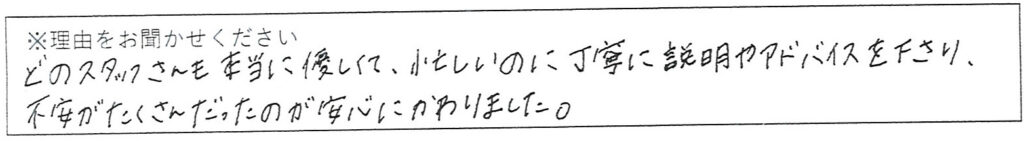 ※理由をお聞かせください
どのスタッフさんも本当に優しくて、忙しいのに丁寧に説明やアドバイスを下さり、
不安がたくさんだったのが安心にかわりました。